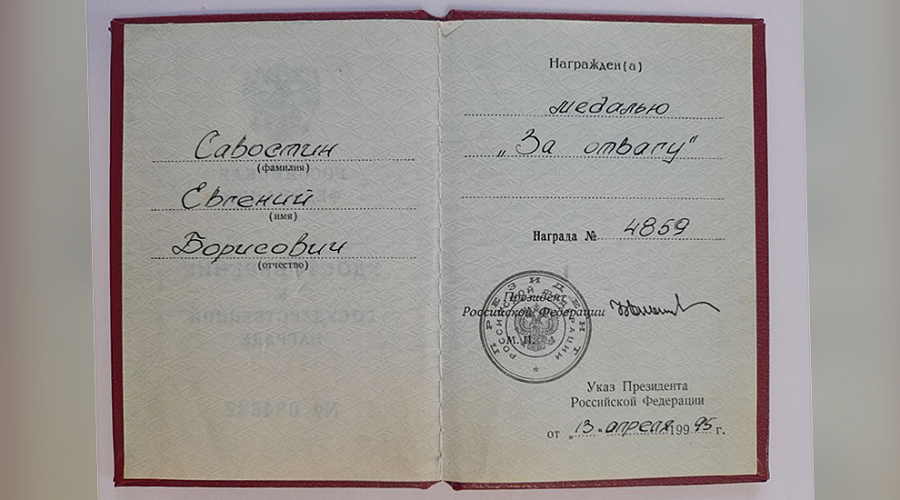 Савостин
(фамилия)
Евгений
(имя)
Борисович
(отчество)
Награжден(а)
медалью
„За отвагу"
Награда № 4859
Президент
Российской Федерации
М. П.
ПРЕЗИДЕНТ
РОССИЙСКОЙ ФЕДЕРАЦИИ
Указ Президента
Российской Федерации
от „13" апреля 1995 г.